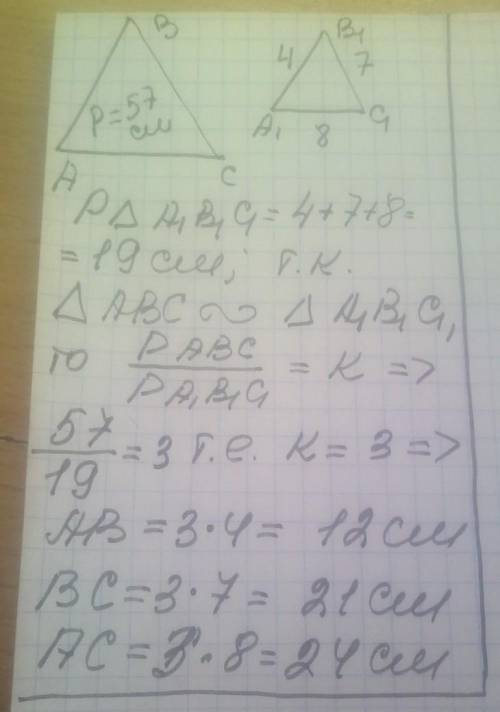 B
B₁
4
7
P=57
см
A₁
C₁
8
A
C
P△ A₁B₁C₁ = 4+7+8=
= 19 см; т.к.
△ ABC ∾ △ A₁B₁C₁,
то P ABC / P A₁B₁C₁ = K =>
57/19 = 3 т.е. K = 3 =>
AB = 3·4 = 12 см
BC = 3·7 = 21 см
AC = 3·8 = 24 см